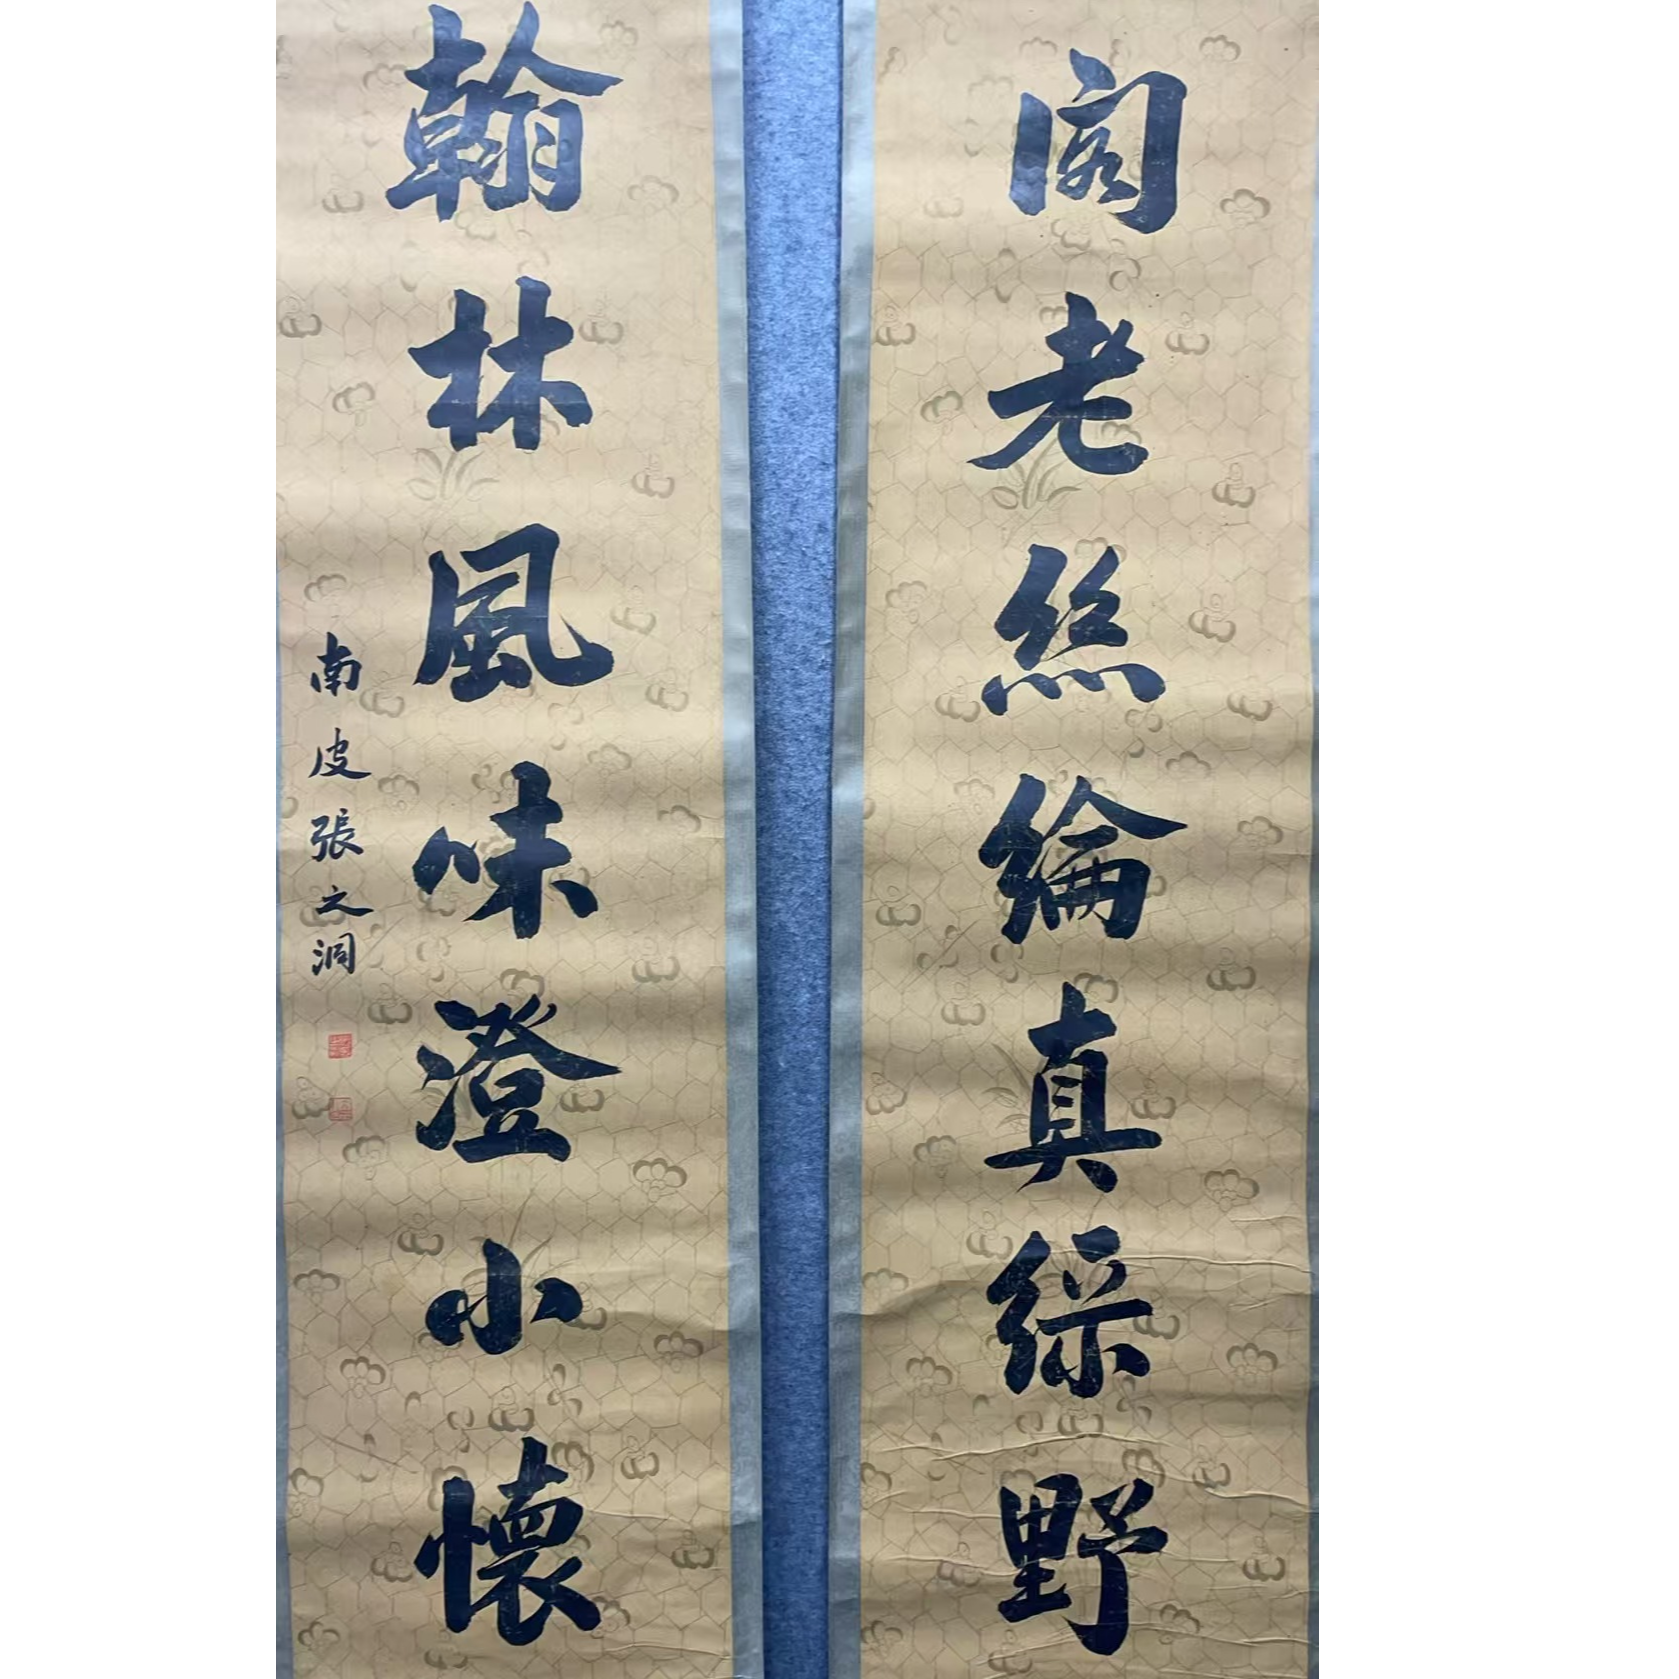 阁老丝綸真綵野
翰林風味澄小懷
南皮張之洞